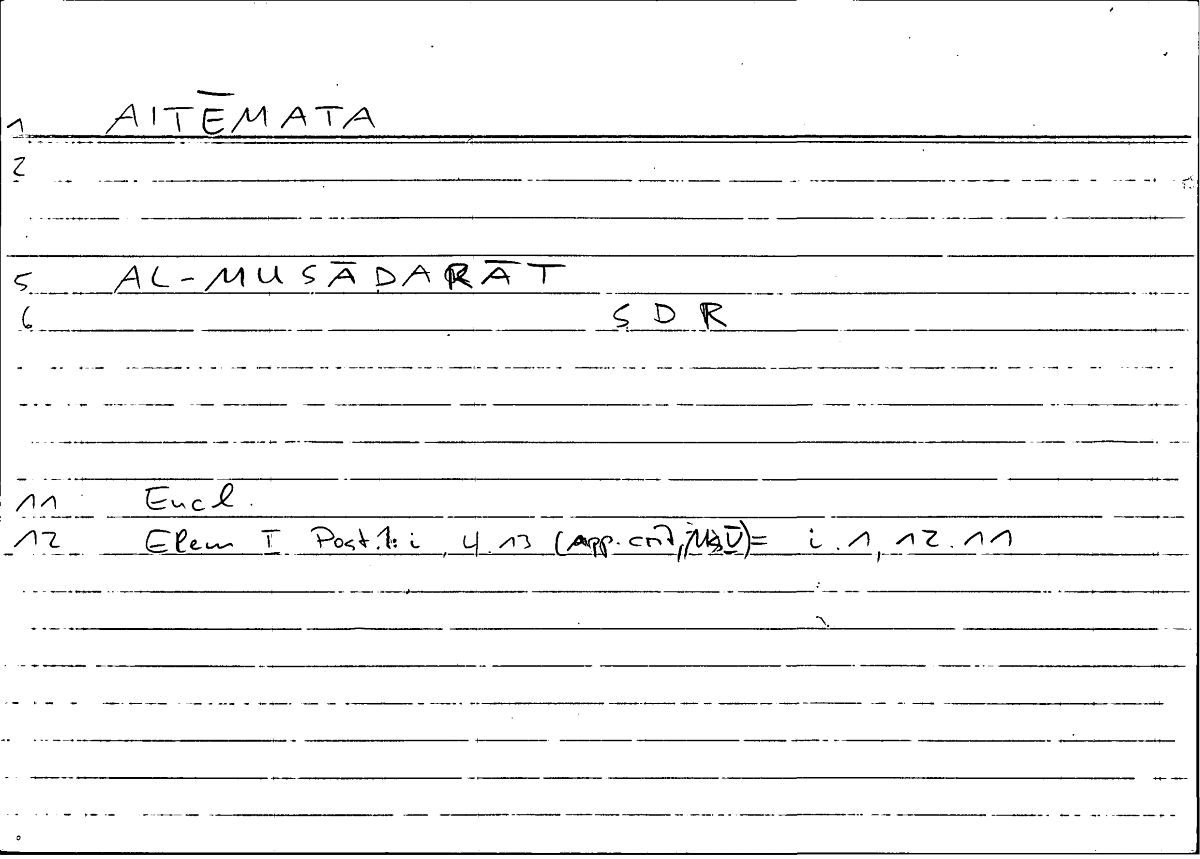 1 AITĒMATA
2
5 AL-MUṢĀDARĀT
6 SDR
11 Eucl.
12 Elem I Post.1: i, 4.13 (App. crit, = i.1, 12.11